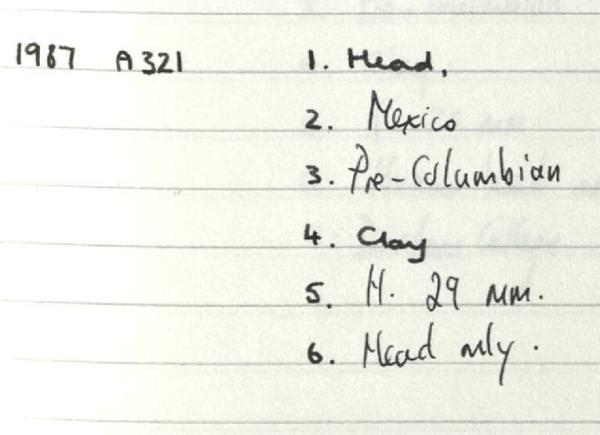 1987 A321 1. Head,
2. Mexico
3. Pre-Columbian
4. Clay
5. H. 29 mm.
6. Head only.